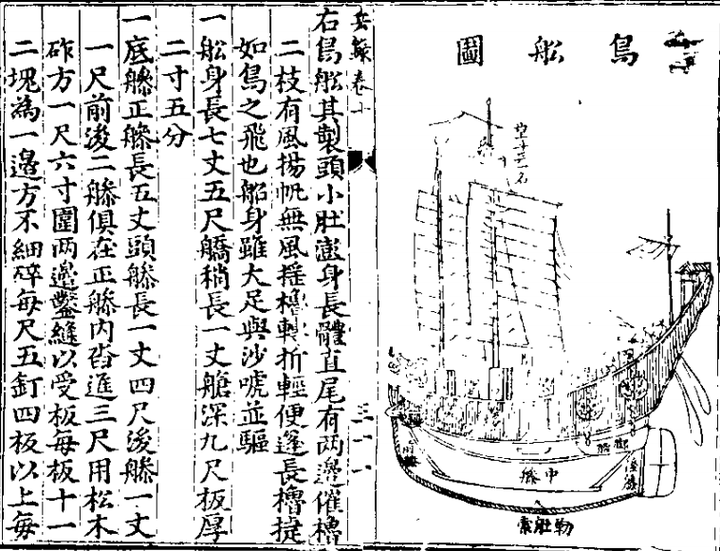 鳥船圖
中𦪙
勒肚索
兵錄卷十
右鳥船其製頭小肚澎身長體直尾有兩邊催櫓
二枝有風揚帆無風搖櫓轉折輕便篷長櫓捷
如鳥之飛也船身雖大足與沙唬並驅
一船身長七丈五尺艢稍長一丈艙深九尺板厚
二寸五分
一底𦪙正𦪙長五丈頭𦪙長一丈四尺後𦪙一丈
一尺前後二𦪙俱在正𦪙內沓進三尺用松木
砟方一尺六寸圍兩邊鑿縫以受板每板十一
二塊為一邊方不細碎每尺五釘四板以上每